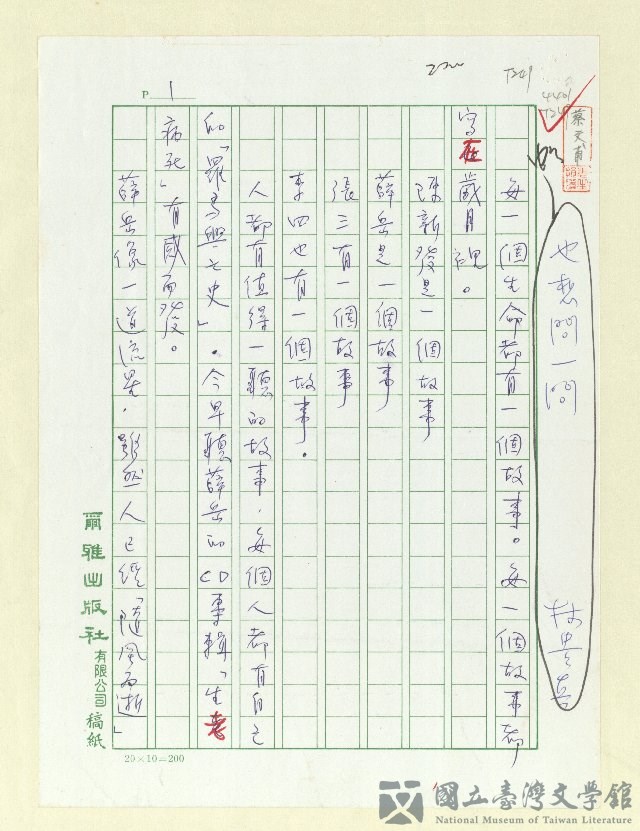 P 1
T201
蔡文甫
也想問一問
林貴真
每一個生命都有一個故事。每一個故事都
寫在歲月裡。
陳新發是一個故事
薛岳是一個故事
張三有一個故事
李四也有一個故事。
人都有值得一聽的故事,每個人都有自己
的「羅馬興亡史」。今早聽薛岳的CD專輯「生老
病死」有感而發。
薛岳像一道流星,雖然人已經「隨風而逝」
爾雅出版社有限公司稿紙
20×10=200
國立臺灣文學館
National Museum of Taiwan Literature